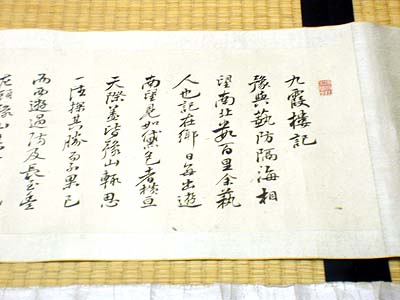 九霞樓記
豫與藝防隔海相
望南北數百里余藝
人也記在鄉日每出遊
南望見如黛色者横亘
天際蓋皆豫山輒思
一陟探其勝而不果已
而西遊過防及長至豊
豫山